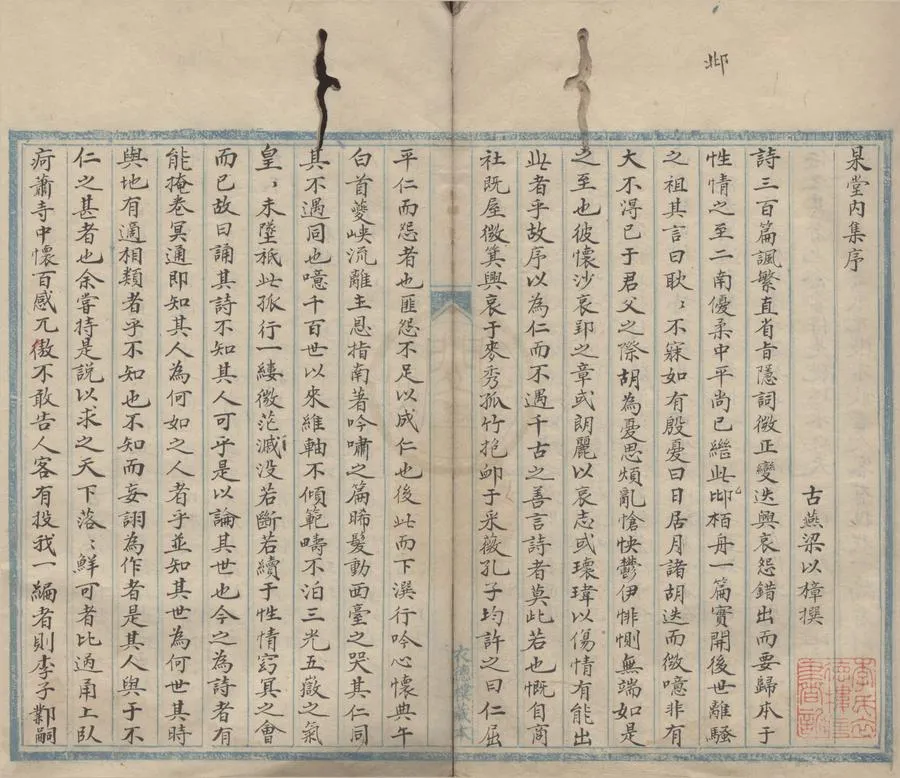 邶
杲堂內集序
古燕梁以樟撰
詩三百篇諷繁直省旨隱詞微正變迭興哀怨錯出而要歸本于
性情之至二南優柔中平尚已繼此邶栢舟一篇實開後世離騷
之祖其言曰耿〻不寐如有殷憂曰日居月諸胡迭而微噫非有
大不得已于君父之際胡為憂思煩亂愴怏鬱伊悱惻無端如是
之至也彼懷沙哀郢之章或朗麗以哀志或瓌瑋以傷情有能出
此者乎故序以為仁而不遇千古之善言詩者莫此若也慨自商
社既屋微箕興哀于麥秀孤竹抱卹于采薇孔子均許之曰仁屈
平仁而怨者也匪怨不足以成仁也後此而下澤行吟心懷典午
白首夔峽流離主恩指南著吟嘯之篇晞髮動西臺之哭其仁同
其不遇同也噫千百世以來維軸不傾範疇不泊三光五嶽之氣
皇〻未墜祇此孤行一縷微茫滅没若斷若續于性情窈冥之會
而已故曰誦其詩不知其人可乎是以論其世也今之為詩者有
能掩卷冥通即知其人為何如之人者乎並知其世為何世其時
與地有適相類者乎不知也不知而妄詡為作者是其人與于不
仁之甚者也余嘗持是說以求之天下落〻鮮可者比過甬上臥
疴蕭寺中懷百感兀傲不敢告人客有投我一編者則李子鄴嗣
衣德樓藏本